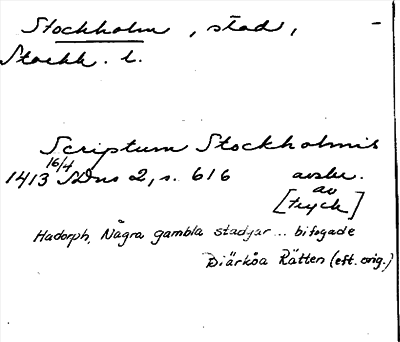 Stockholm, stad, -
Stockh. l.
Scriptum Stockholmis
1413 16/4 SDns 2, s. 616 avskr.
av
[tryck]
Hadorph, Några gambla stadgar... bifogade
Biärköa Rätten (eft. orig.)